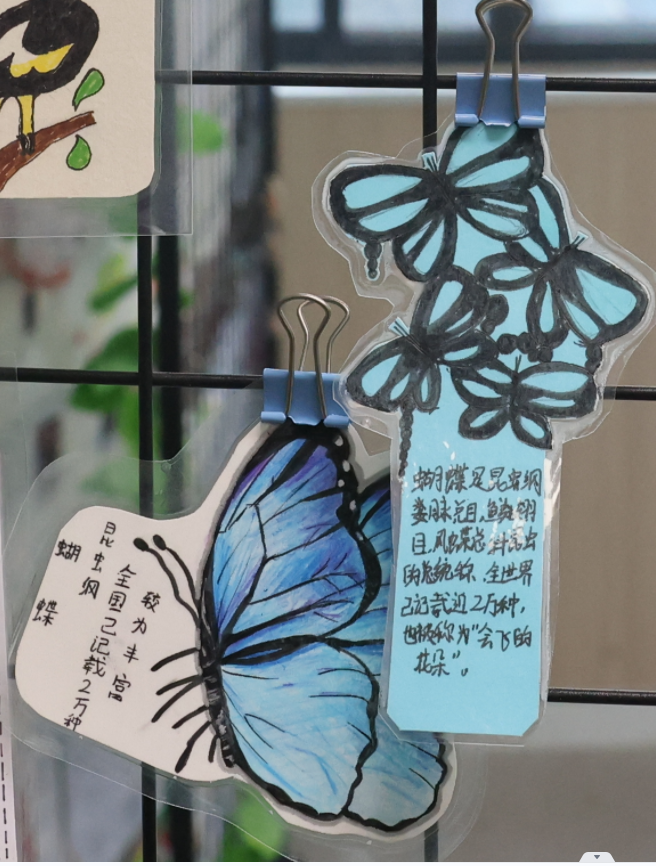 蝴蝶
昆虫纲
全国己记载2万种
为丰富
蝴蝶是昆虫纲
类脉总目.鳞翅
目.凤蝶总科昆虫
的总统称.全世界
己记载近2万种,
也被称为"会飞的
花朵"。